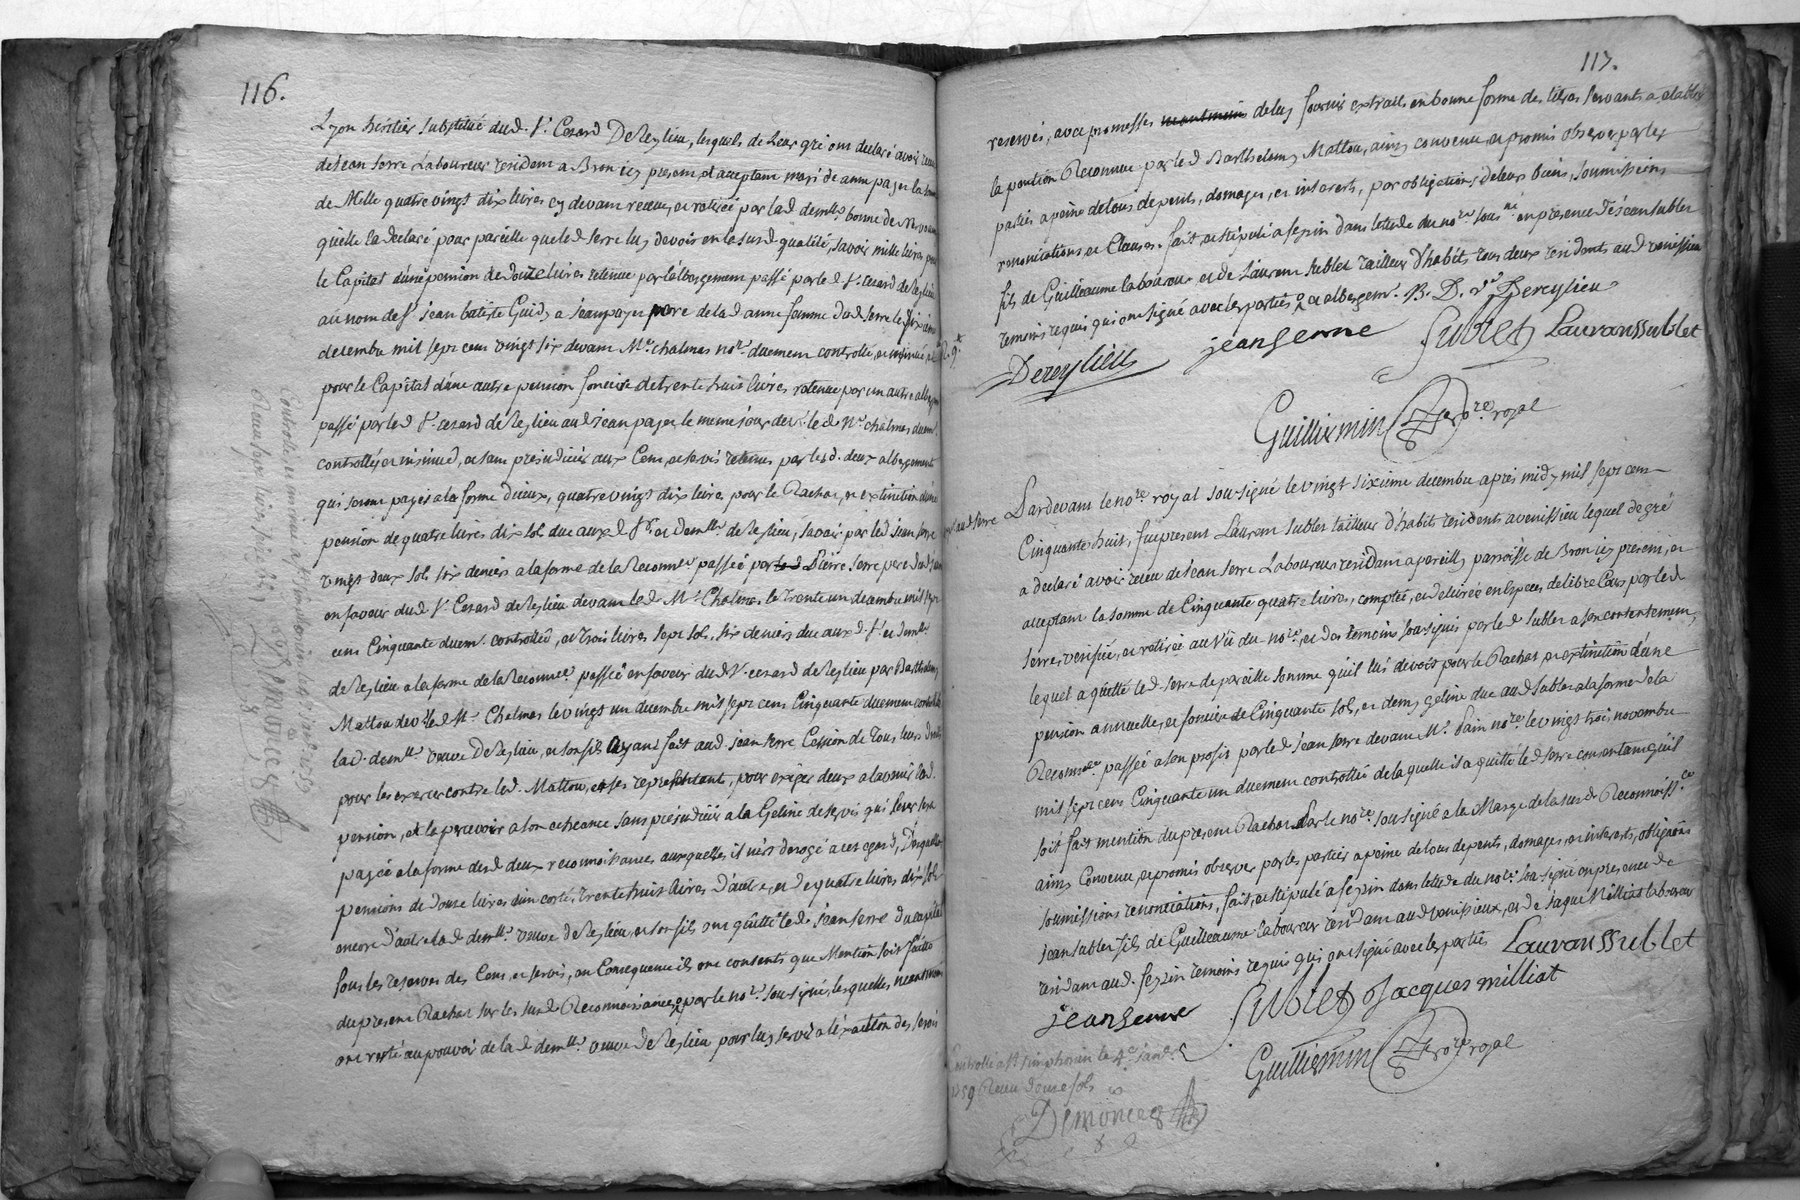 116.
Lyon héritier substitué dud. Sr. Cesard Dereylieu, lesquels de leur gré ont declaré avoir receu
de Jean Serre Laboureur residant a Bron icy present et acceptant mari de anne pajen la somme
de Mille quatre vingt dix livres cy devant receue, et retirée par lad demlle bonne de
quelle a declaré pour pareille que led Serre luy devoit en la susd qualité, savoir mille livres pour
le Capital d'une pension de douze livres retenue par l'albergement passé par led Sr. cesard dereylieu
au nom de Sr Jean batiste Guidy a Jean pajen pere de lad anne femme dud Serre le dix
decembre mil sept cens vingt six devant Me. chalmas nore. duement controllé, et insinué
pour le Capital d'une autre pension fonciere de trente huit livres retenue par un autre
passé par led Sr. cesard dereylieu aud Jean pajen le meme jour devt. led Me. chalmas duemt.
controllé, et insinué, et sans prejudicier aux Cens, et servis retenus par lesd. deux albergements
qui seront payés a la forme d'iceux, quatre vingt dix livres pour le Rachat, et extinction d'une
pension de quatre livres dix sols due auxd Sr. et demlle de reylieu, savoir par led Jean Serre
vingt deux sols six deniers a la forme de la Reconnce passée par Pierre Serre pere dud Jean
en faveur dud Sr. Cesard dereylieu devant led Me. Chalmas le trente un decembre mil sept
cens Cinquante duemt. controllée, et trois livres sept sols six deniers due auxd. Sr. et demlle.
de reylieu a la forme de la Reconnce. passée en faveur dud Sr. cesard dereylieu par Barthelemy
Mattou devt led Me. Chalmas le vingt un decembre mil sept cens Cinquante duement controllée
lad. demlle. veuve Dereylieu, et son fils ayant fait aud. Jean Serre Cession de tous leurs droits
pour les exercer contre led. Mattou, et ses representant, pour exiger deux a l'avenir lad.
pension, et la percevoir a son echeance sans prejudicier a la Geline de servis qui leur sera
payée a la forme desd deux reconnoissances auxquelles il n'est derogé a cet egard, Desquelles
pensions de douze livres d'un coté, trente huit livres d'autre, et de quatre livres dix sols
encore d'autre lad demlle. veuve Dereylieu, et son fils ont quitté led. Jean Serre du capital
sous les reserves des Cens, et servis, en Consequence ils ont consenti que Mention soit faitte
du present Rachat sur les susd Reconnoissances par le nore. sousigné, lesquelles neantmoins
ont resté au pouvoir de lad demlle. veuve dereylieu pour luy servir a l'exaction des servis
117.
reservés, avec promesses de luy fournir extraits en bonne forme des titres servants a etablir
la portion Reconnue par led Barthelemy Mattou, ainsi convenu, et promis observer par les
parties a peine de tous depents, domages, et interests, par obligations, de leurs biens, soumissions
renonciations et Clauses. fait, et stipulé a feyzin dans l'etude du nore sousné. en presence de Jean Sublet
fils de Guilleaume laboureur et de Laurent Sublet tailleur d'habits tous deux residents aud venissieu
temoins requis qui ont signé avec les parties et albergemt. B. D. ve Dereylieu
Dereylieu jean serre Sublet Lauranssublet
Guilliermin nore royal
Pardevant le nore. royal sousigné le vingt sixieme decembre après midy mil sept cens
Cinquante huit, fut present Laurent Sublet tailleur d'habit resident a venissieu lequel de gré
a declaré avoir receu de Jean Serre Laboureur residant a pareilly parroisse de Bron icy present, et
acceptant la somme de Cinquante quatre livres, comptée, et delivrée en Especes de libre Cours par led
Serre, verifiée, et retirée au vû du nore, et des temoins sousignés par led Sublet a son contentement,
lequel a quitté led Serre de pareille somme qu'il lui devoit pour le Rachat et extinction d'une
pension annuelle, et fonciere de Cinquante sols, et demy geline due aud Sublet a la forme de la
Reconnce. passée a son profit par led Jean Serre devant Me. Pain nore. le vingt trois novembre
mil sept cens Cinquante un duement controllée de laquelle il a quitté led Serre consentant qu'il
soit fait mention du present Rachat Par le nore. sousigné a la Marge de la susd Reconnoissce
ainsi Convenu, et promis observer par les parties a peine de tous depents, domages, et interests, obligations
soumissions renonciations, fait, et stipulé a feyzin dans l'etude du nore. sousigné en presence de
Jean Sublet fils de Guilleaume laboureur residant aud venissieux, et de Jaque Milliat laboureur
residant aud. feyzin temoins requis qui ont signé avec les parties Lauranssublet
jean serre Sublet Jacques milliat
Guilliermin nore royal
Controllé a St simphorin le 4e. janv.
1759 Receu douze sols
Demoncez